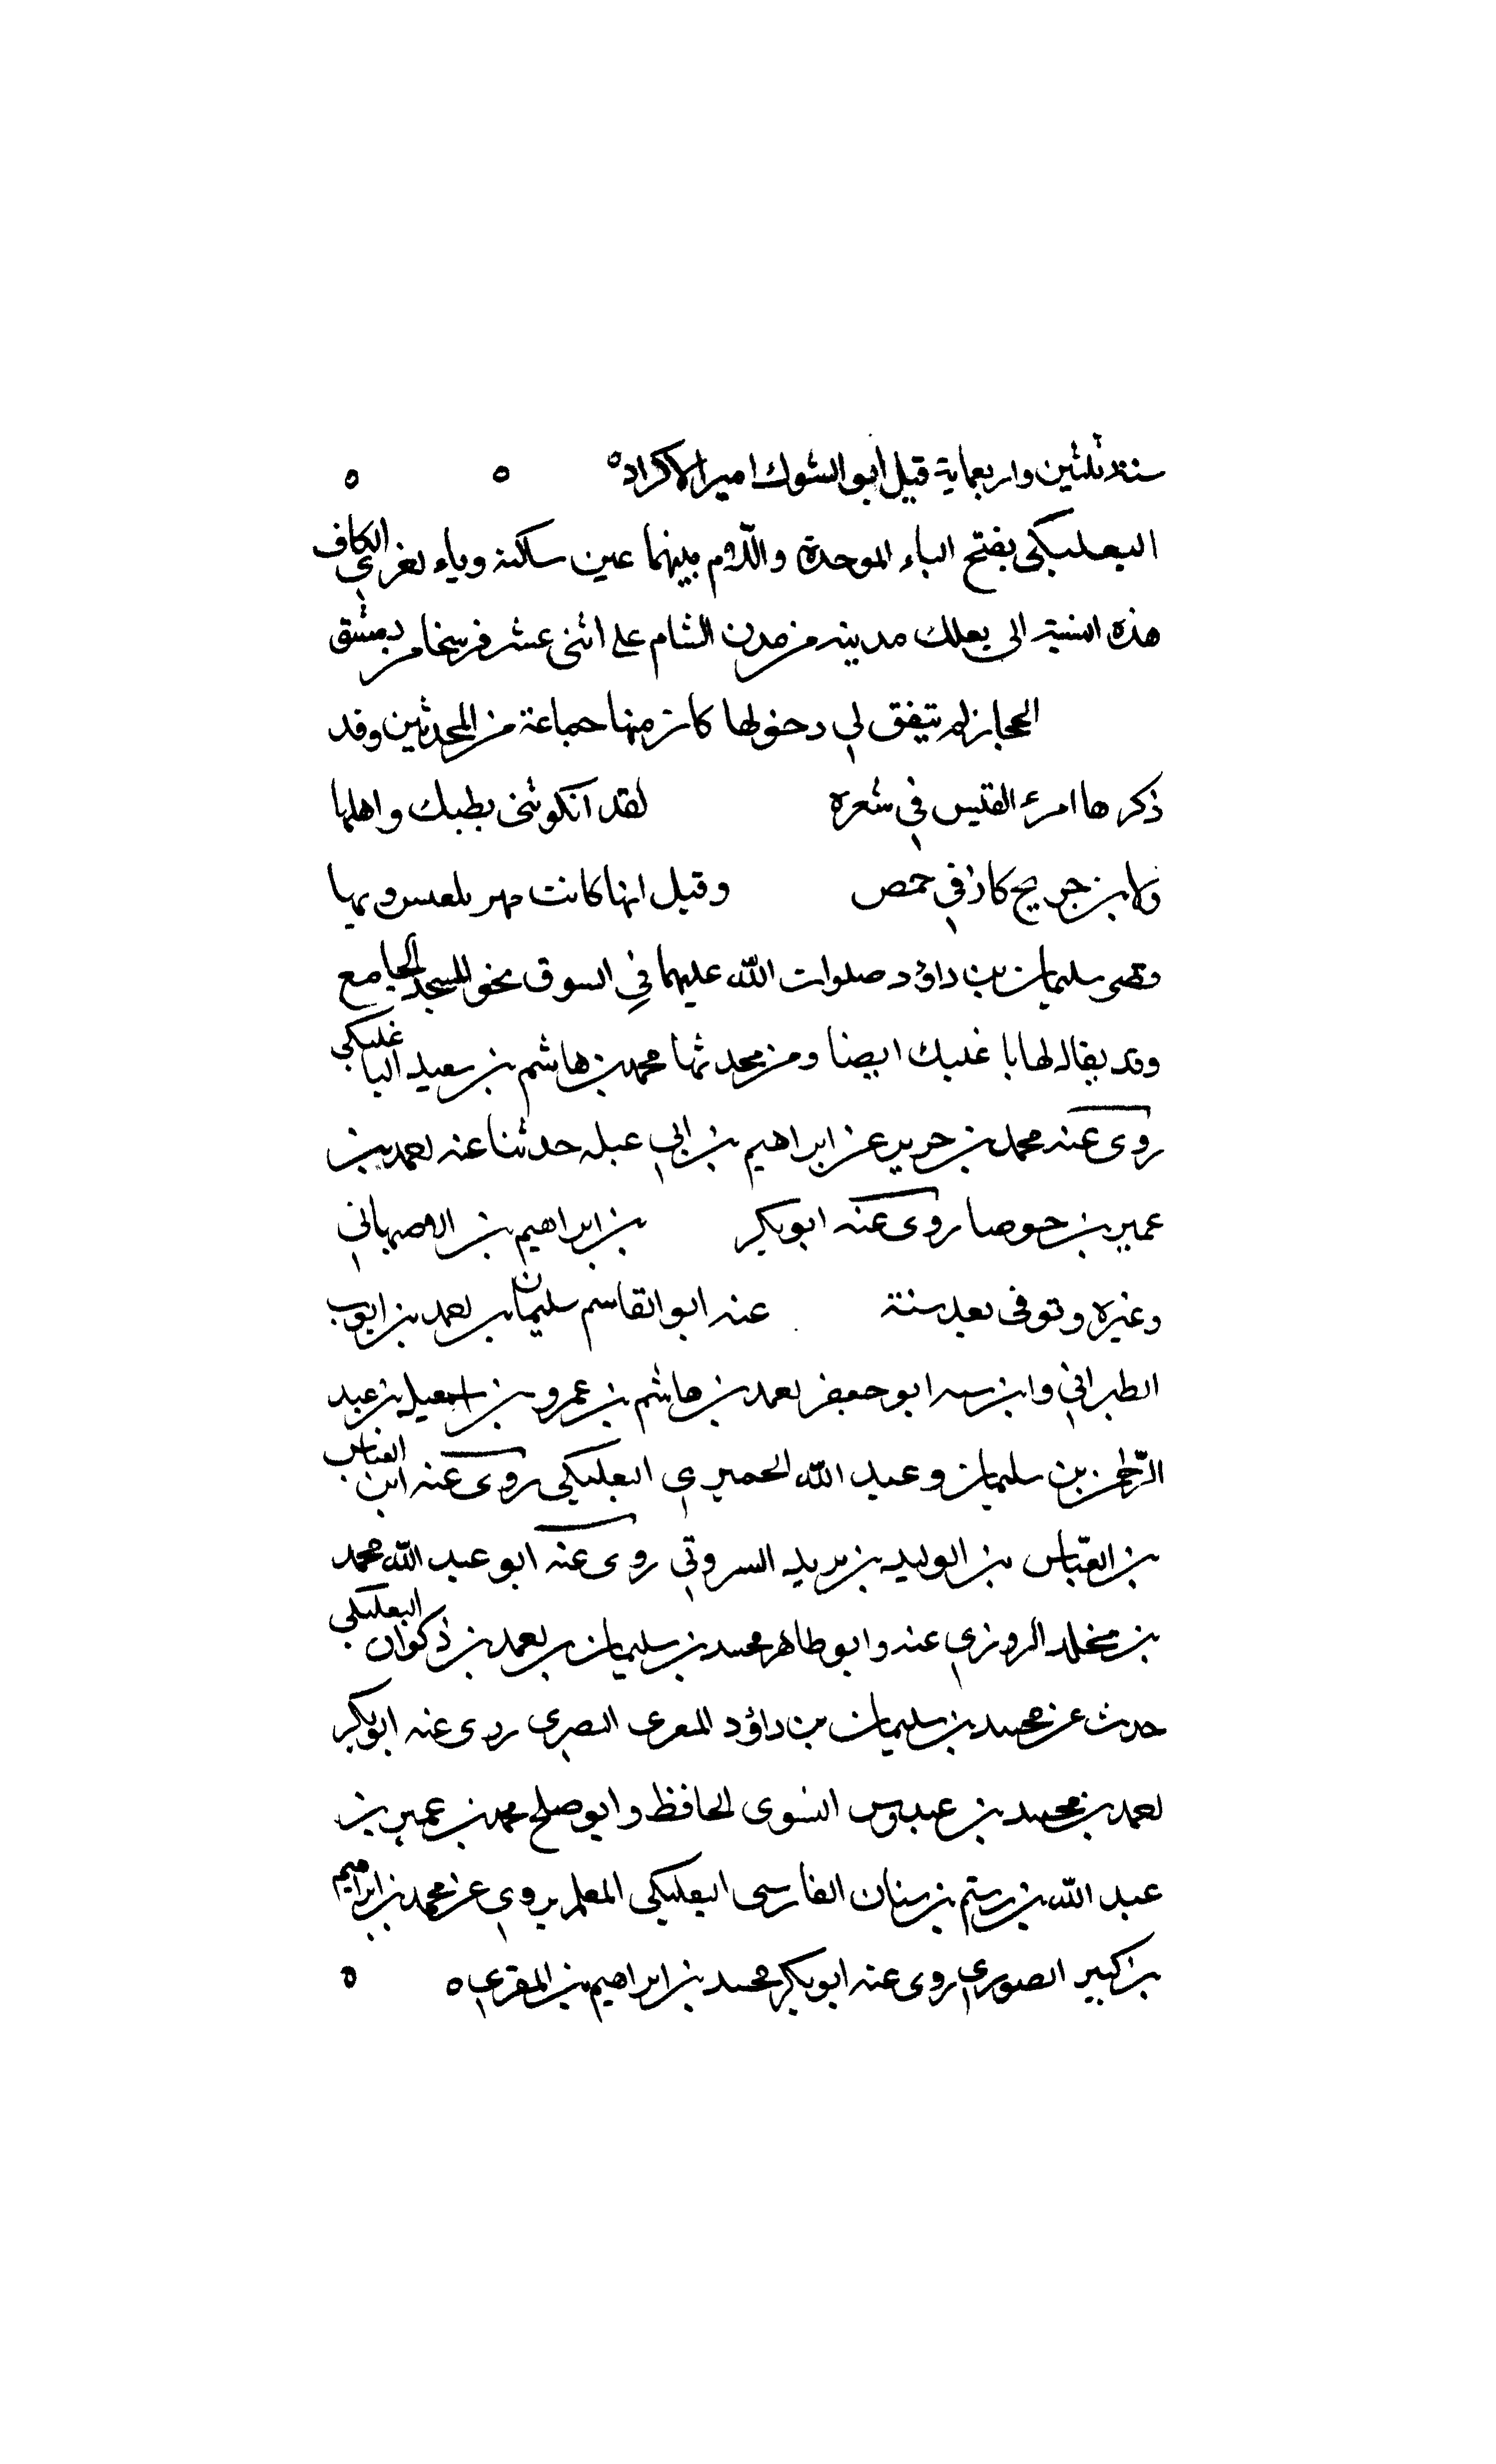 سنة ثلثين واربعماية قيل أبو الشوك امير الاكراد ه ه ه
البعلبكى بفتح الباء الموحدة واللام بينهما عين ساكنة وباء اخرى الكاف
هذه النسبة الى بعلبك مدينه من مدن الشام على اثنى عشر فرسخا من دمشق
الحجاز لم يتفق لي دخولها كان منها جماعة من المحدثين وقد
ذكرها امرء القيس في شعره لقد انكرتنى بعلبك واهلها
ولابن جريج كان في حمص وقيل انها كانت مهر بلقيس وبها
قصى سليمان بن داؤد صلوات الله عليهما في السوق نحو المسجد الجامع
وقد يقال لها باغلبك ايضا ومن محدثها محمد بن هاشم بن سعيد الباغلبكي
روى عنه محمد بن جرير عن ابراهيم بن ابي عبله حدثنا عنه احمد بن
عمير بن حوصا روى عنه ابو بكر بن ابراهيم بن الاصبهاني
وغيره وتوفى بعد سنة عنه ابو القاسم سليمان بن احمد بن ايوب
الطبراني وابن ابو جعفر احمد بن هاشم بن عمرو بن اسمعيل بن عبد
الرحمن بن سليمان وعبد الله الحميري البعلبكي روى عنه ابن العباس
بن العباس بن الوليد بن مزيد البيروتي روى عنه ابو عبد الله محمد
بن مخلد الدوري عنه وابو طاهر محمد بن سليمان بن احمد بن ذكوان البعلبكي
حدث عن محمد بن سليمان بن داؤد المقرى البصري روى عنه ابو بكر
احمد بن محمد بن عبدوس النسوى الحافظ وابو صلح محمد بن عمير بن
عبد الله بن رستم بن سنان الفارسى البعلبكي المعلم يروي عن محمد بن ابراهيم
بن كبير الصوري روى عنه ابو بكر محمد بن ابراهيم بن المقري ه ه